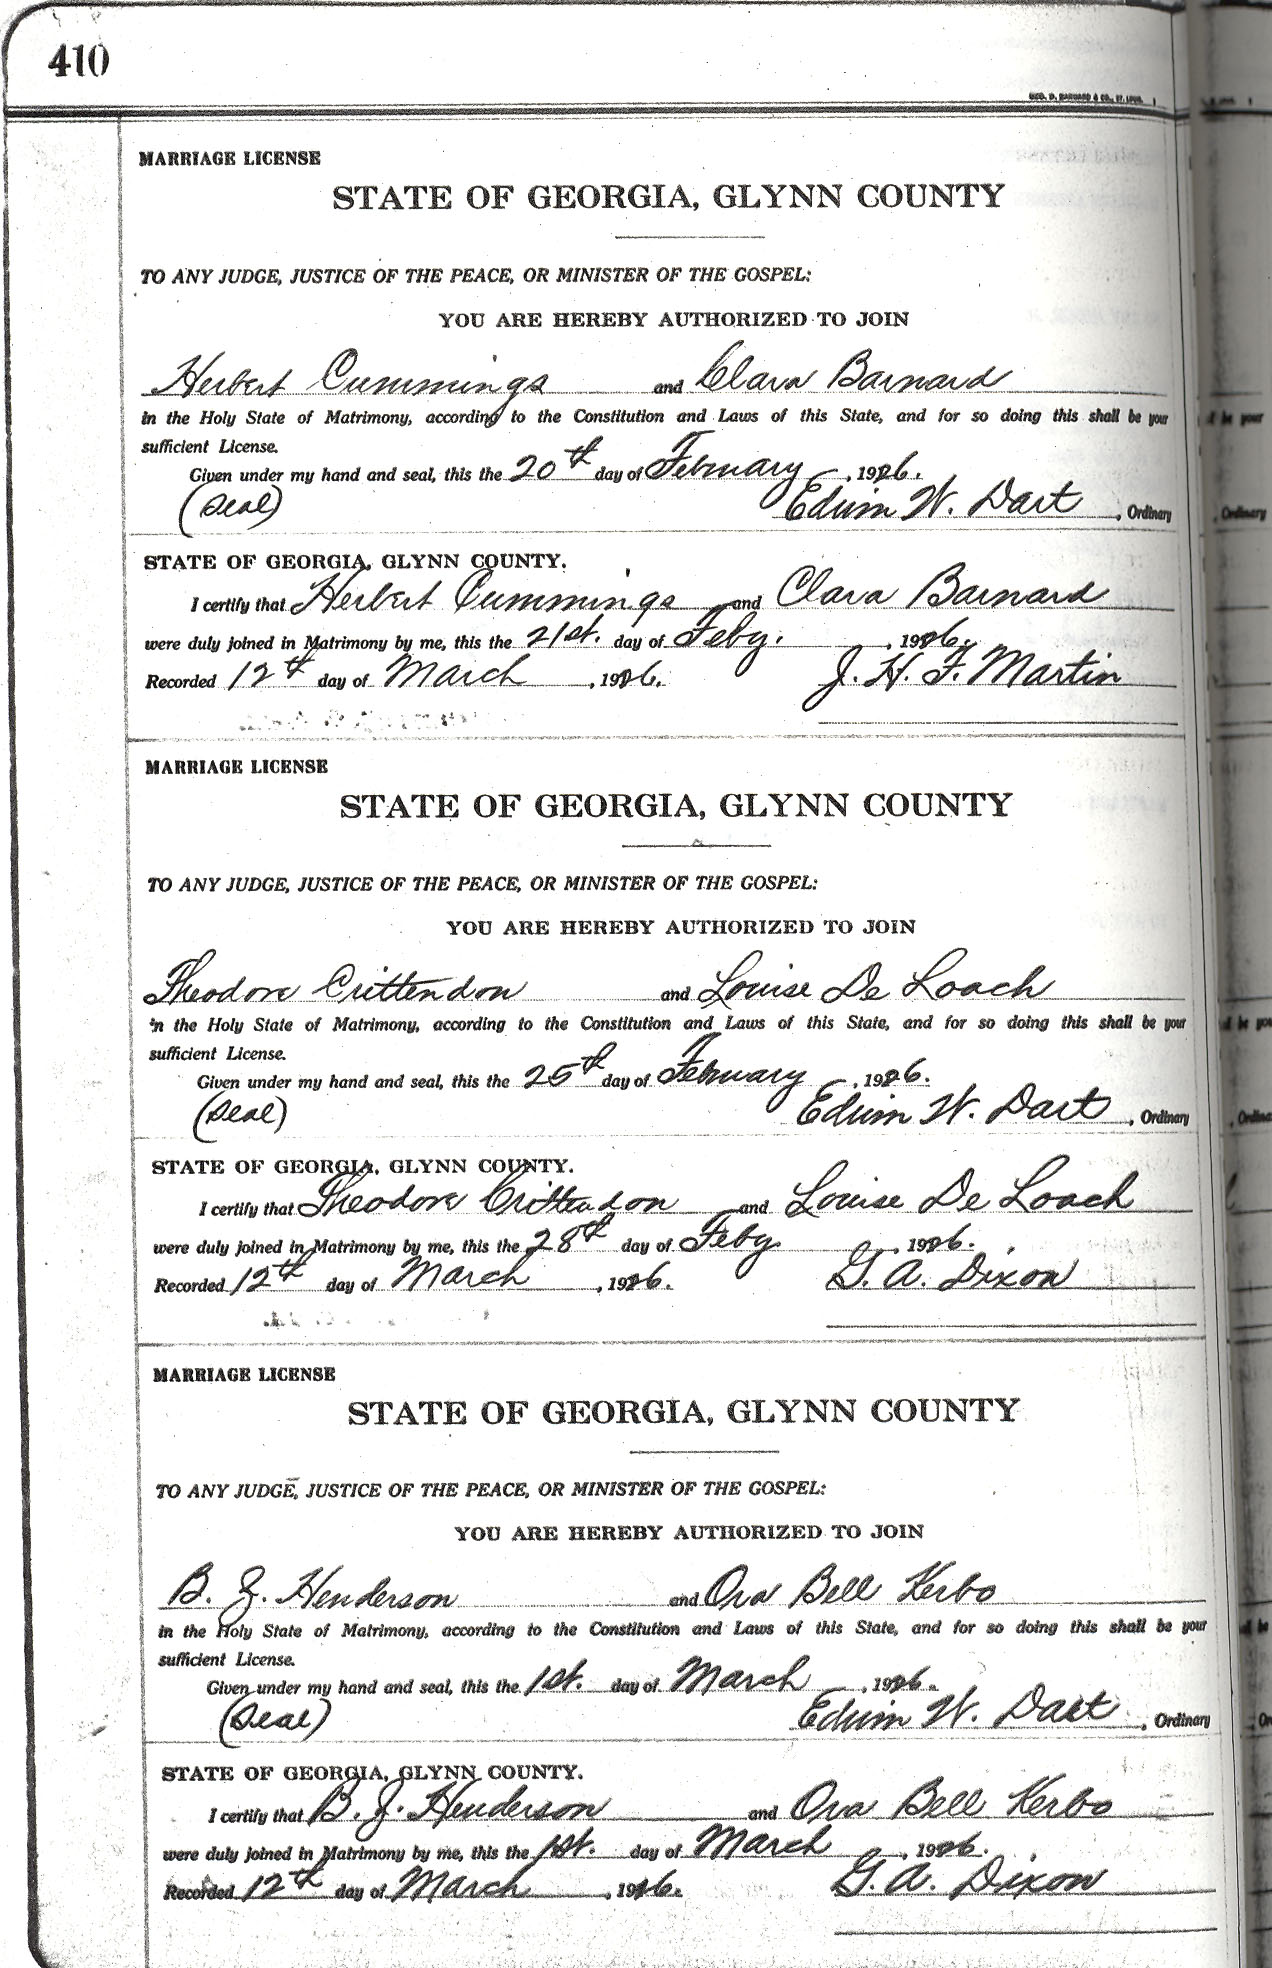 410
GEO. D. BARNARD & CO., ST. LOUIS
MARRIAGE LICENSE
STATE OF GEORGIA, GLYNN COUNTY
TO ANY JUDGE, JUSTICE OF THE PEACE, OR MINISTER OF THE GOSPEL:
YOU ARE HEREBY AUTHORIZED TO JOIN
Herbert Cummings and Clara Barnard
in the Holy State of Matrimony, according to the Constitution and Laws of this State, and for so doing this shall be your
sufficient License.
Given under my hand and seal, this the 20th day of February, 1926.
(Seal) Edwin W. Dart, Ordinary
STATE OF GEORGIA, GLYNN COUNTY.
I certify that Herbert Cummings and Clara Barnard
were duly joined in Matrimony by me, this the 21st. day of Feby., 1926.
Recorded 12th day of March, 1926. J. H. F. Martin
MARRIAGE LICENSE
STATE OF GEORGIA, GLYNN COUNTY
TO ANY JUDGE, JUSTICE OF THE PEACE, OR MINISTER OF THE GOSPEL:
YOU ARE HEREBY AUTHORIZED TO JOIN
Theodore Crittendon and Louise De Loach
in the Holy State of Matrimony, according to the Constitution and Laws of this State, and for so doing this shall be your
sufficient License.
Given under my hand and seal, this the 25th day of February, 1926.
(Seal) Edwin W. Dart, Ordinary
STATE OF GEORGIA, GLYNN COUNTY.
I certify that Theodore Crittendon and Louise De Loach
were duly joined in Matrimony by me, this the 28th day of Feby, 1926.
Recorded 12th day of March, 1926. G. A. Dixon
MARRIAGE LICENSE
STATE OF GEORGIA, GLYNN COUNTY
TO ANY JUDGE, JUSTICE OF THE PEACE, OR MINISTER OF THE GOSPEL:
YOU ARE HEREBY AUTHORIZED TO JOIN
B. J. Henderson and Ora Bell Kerbo
in the Holy State of Matrimony, according to the Constitution and Laws of this State, and for so doing this shall be your
sufficient License.
Given under my hand and seal, this the 1st. day of March, 1926.
(Seal) Edwin W. Dart, Ordinary
STATE OF GEORGIA, GLYNN COUNTY.
I certify that B. J. Henderson and Ora Bell Kerbo
were duly joined in Matrimony by me, this the 1st. day of March, 1926.
Recorded 12th day of March, 1926. G. A. Dixon